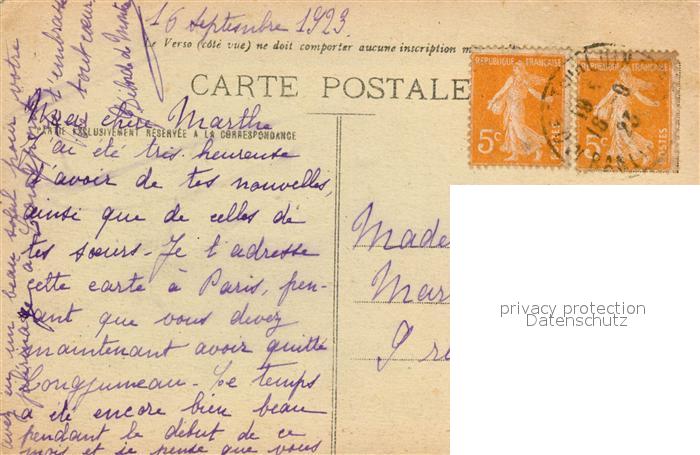 16 septembre 1923
Le Verso (côté vue) ne doit comporter aucune inscription m
CARTE POSTALE
REPUBLIQUE FRANÇAISE
5c
POSTES
REPUBLIQUE FRANÇAISE
5c
POSTES
Ma chère Marthe
PARTIE EXCLUSIVEMENT RÉSERVÉE A LA CORRESPONDANCE
J'ai été très heureuse
d'avoir de tes nouvelles,
ainsi que de celles de
tes sœurs. Je t'adresse
cette carte à Paris, pen-
sant que vous devez
maintenant avoir quitté
Longjumeau. Le temps
a été encore bien beau
pendant le début de ce
mois et je pense que vous
avez eu un beau soleil pour votre
pèlerinage à
t'embrasse
tout cœur
Made
Mar
9 r
privacy protection
Datenschutz